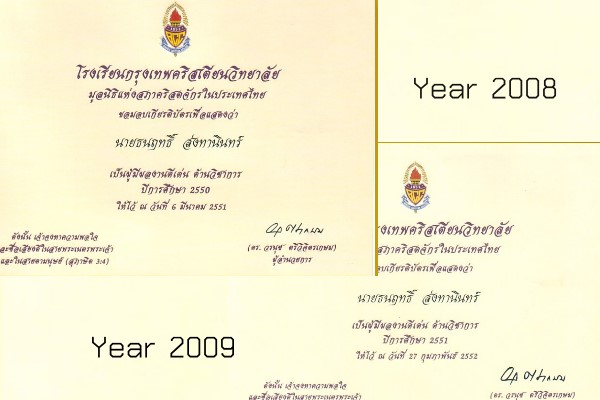 โรงเรียนกรุงเทพคริสเตียนวิทยาลัย
มูลนิธิแห่งสภาคริสตจักรในประเทศไทย
ขอมอบเกียรติบัตรเพื่อแสดงว่า
นายธนฤทธิ์ ส่งทานินทร์
เป็นผู้มีผลงานดีเด่น ด้านวิชาการ
ปีการศึกษา 2550
ให้ไว้ ณ วันที่ 6 มีนาคม 2551
ดังนั้น เจ้าจงหาความพอใจ
และชื่อเสียงดีในสายพระเนตรพระเจ้า
และในสายตามนุษย์ (สุภาษิต 3:4)
(ดร. วรนุช ตรีวิจิตรเกษม)
ผู้อำนวยการ
Year 2008
งเทพคริสเตียนวิทยาลัย
สภาคริสตจักรในประเทศไทย
อบเกียรติบัตรเพื่อแสดงว่า
นายธนฤทธิ์ ส่งทานินทร์
เป็นผู้มีผลงานดีเด่น ด้านวิชาการ
ปีการศึกษา 2551
ให้ไว้ ณ วันที่ 27 กุมภาพันธ์ 2552
ดังนั้น เจ้าจงหาความพอใจ
และชื่อเสียงดีในสายพระเนตรพระเจ้า
(ดร. วรนุช ตรีวิจิตรเกษม)
Year 2009